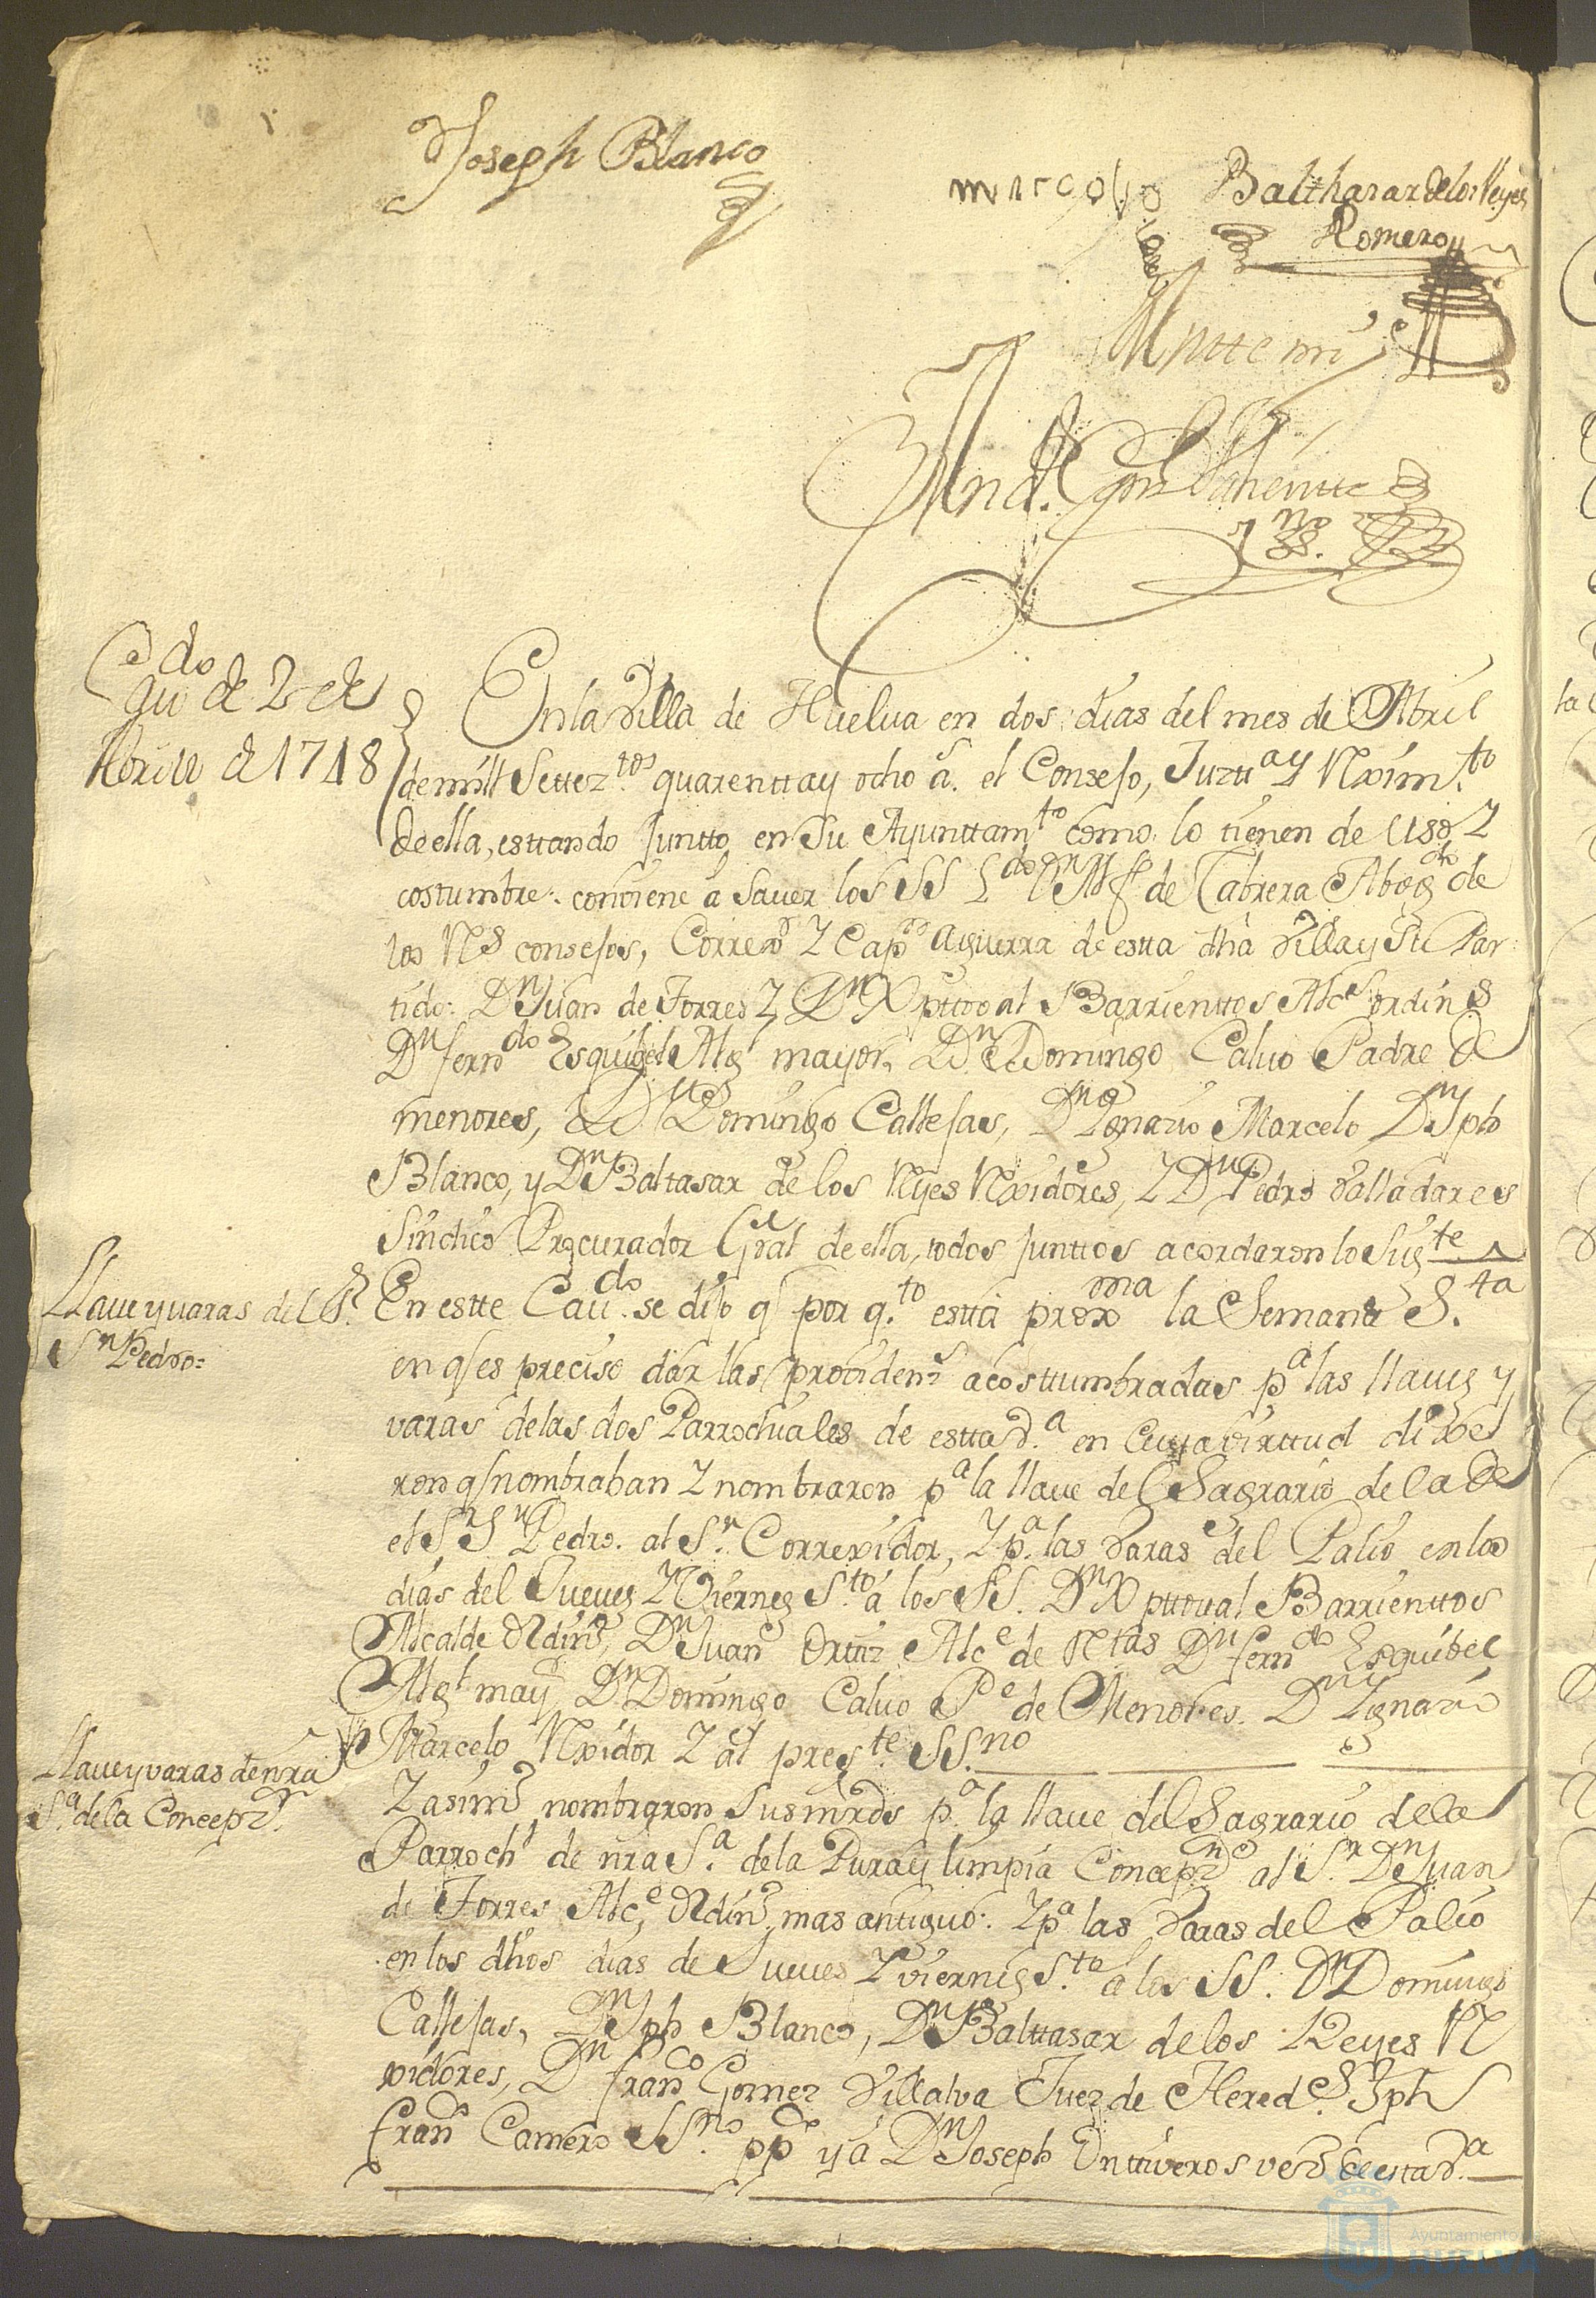 Joseph Blanco
Marcelo
Balthasar de los Reyes
Romero
Antte mi
And. Gonz Valientte
SS.no
Caudo de 2 de
Abrill de 1748
En la Villa de Huelua en dos dias del mes de Abril
de mill Settez.tos quarentta y ocho a.s el Consejo, Justt.a y Rexim.to
de ella, esttando juntto en Su Ayunttam.to como lo tienen de Uso y
costumbre. conviene a Sauer los SS L.do D.n de Cabrera Abog.do de
los R.s consejos, Correx.or y Cap.n a guerra de estta dha Villa y Su Par
tido: D.n Juan de Torres y D.n Xpttoval Barrienttos Alc.es ordin.s
D.n fern.do Esquibel Alg.l mayor, D.n Domingo Calvo Padre de
menores, D.n Domingo Callejas, D.n Ygnacio Marcelo D.n Jph
Blanco, y D.n Baltasar de los Reyes Rexidores, y D.n Pedro Valladares
Sindico Procurador Gral de ella, todos junttos acordaron lo Sig.te
Llaue y varas del S.r
S.n Pedro=
En estte Cau.do se dijo q por q.to estta prox.ma la Semana S.ta
en q es preciso dar las providen.s acosttumbradas p.a las llaues y
varas de las dos Parrochiales de estta V.a en Cuya virttud dixe
ron q nombraban y nombraron p.a la llaue del Sagrario de la de
el S.r S.n Pedro. al S.r Correxidor, y p.a las Varas del Palio en los
dias del Jueues y Viernes S.to a los SS. D.n Xpttoval Barrienttos
Alcalde Ordin.o, D.n Juan Orttiz Alc.e de R.tas D.n fern.do Esquibel
Alg.l may.r D.n Domingo Calvo P.e de Menores. D.n Ygnacio
Marcelo Rexidor y al pres.te SS.no
Llaue y varas de nra
S.a de la Concepz.n
Y asim.o nombraron Sus mrds p.a la llaue del Sagrario de la
Parroch.l de nra S.a de la Pura y limpia Concepz.n al S.r D.n Juan
de Torres Alc.e Ordin.o mas antiguo. Y p.a las Varas del Palio
en los dhos dias de Jueues y viernes S.to a los SS. D.n Domingo
Callejas, D.n Jph Blanco, D.n Balttasar de los Reyes Re
xidores, D.n fran.co Gomez Villalva Juez de Hered.s Jph
fran.co Camero SS.no pp.co y a D.n Joseph Onttiveros vez.o de esta V.a
Ayuntamiento de
HUELVA